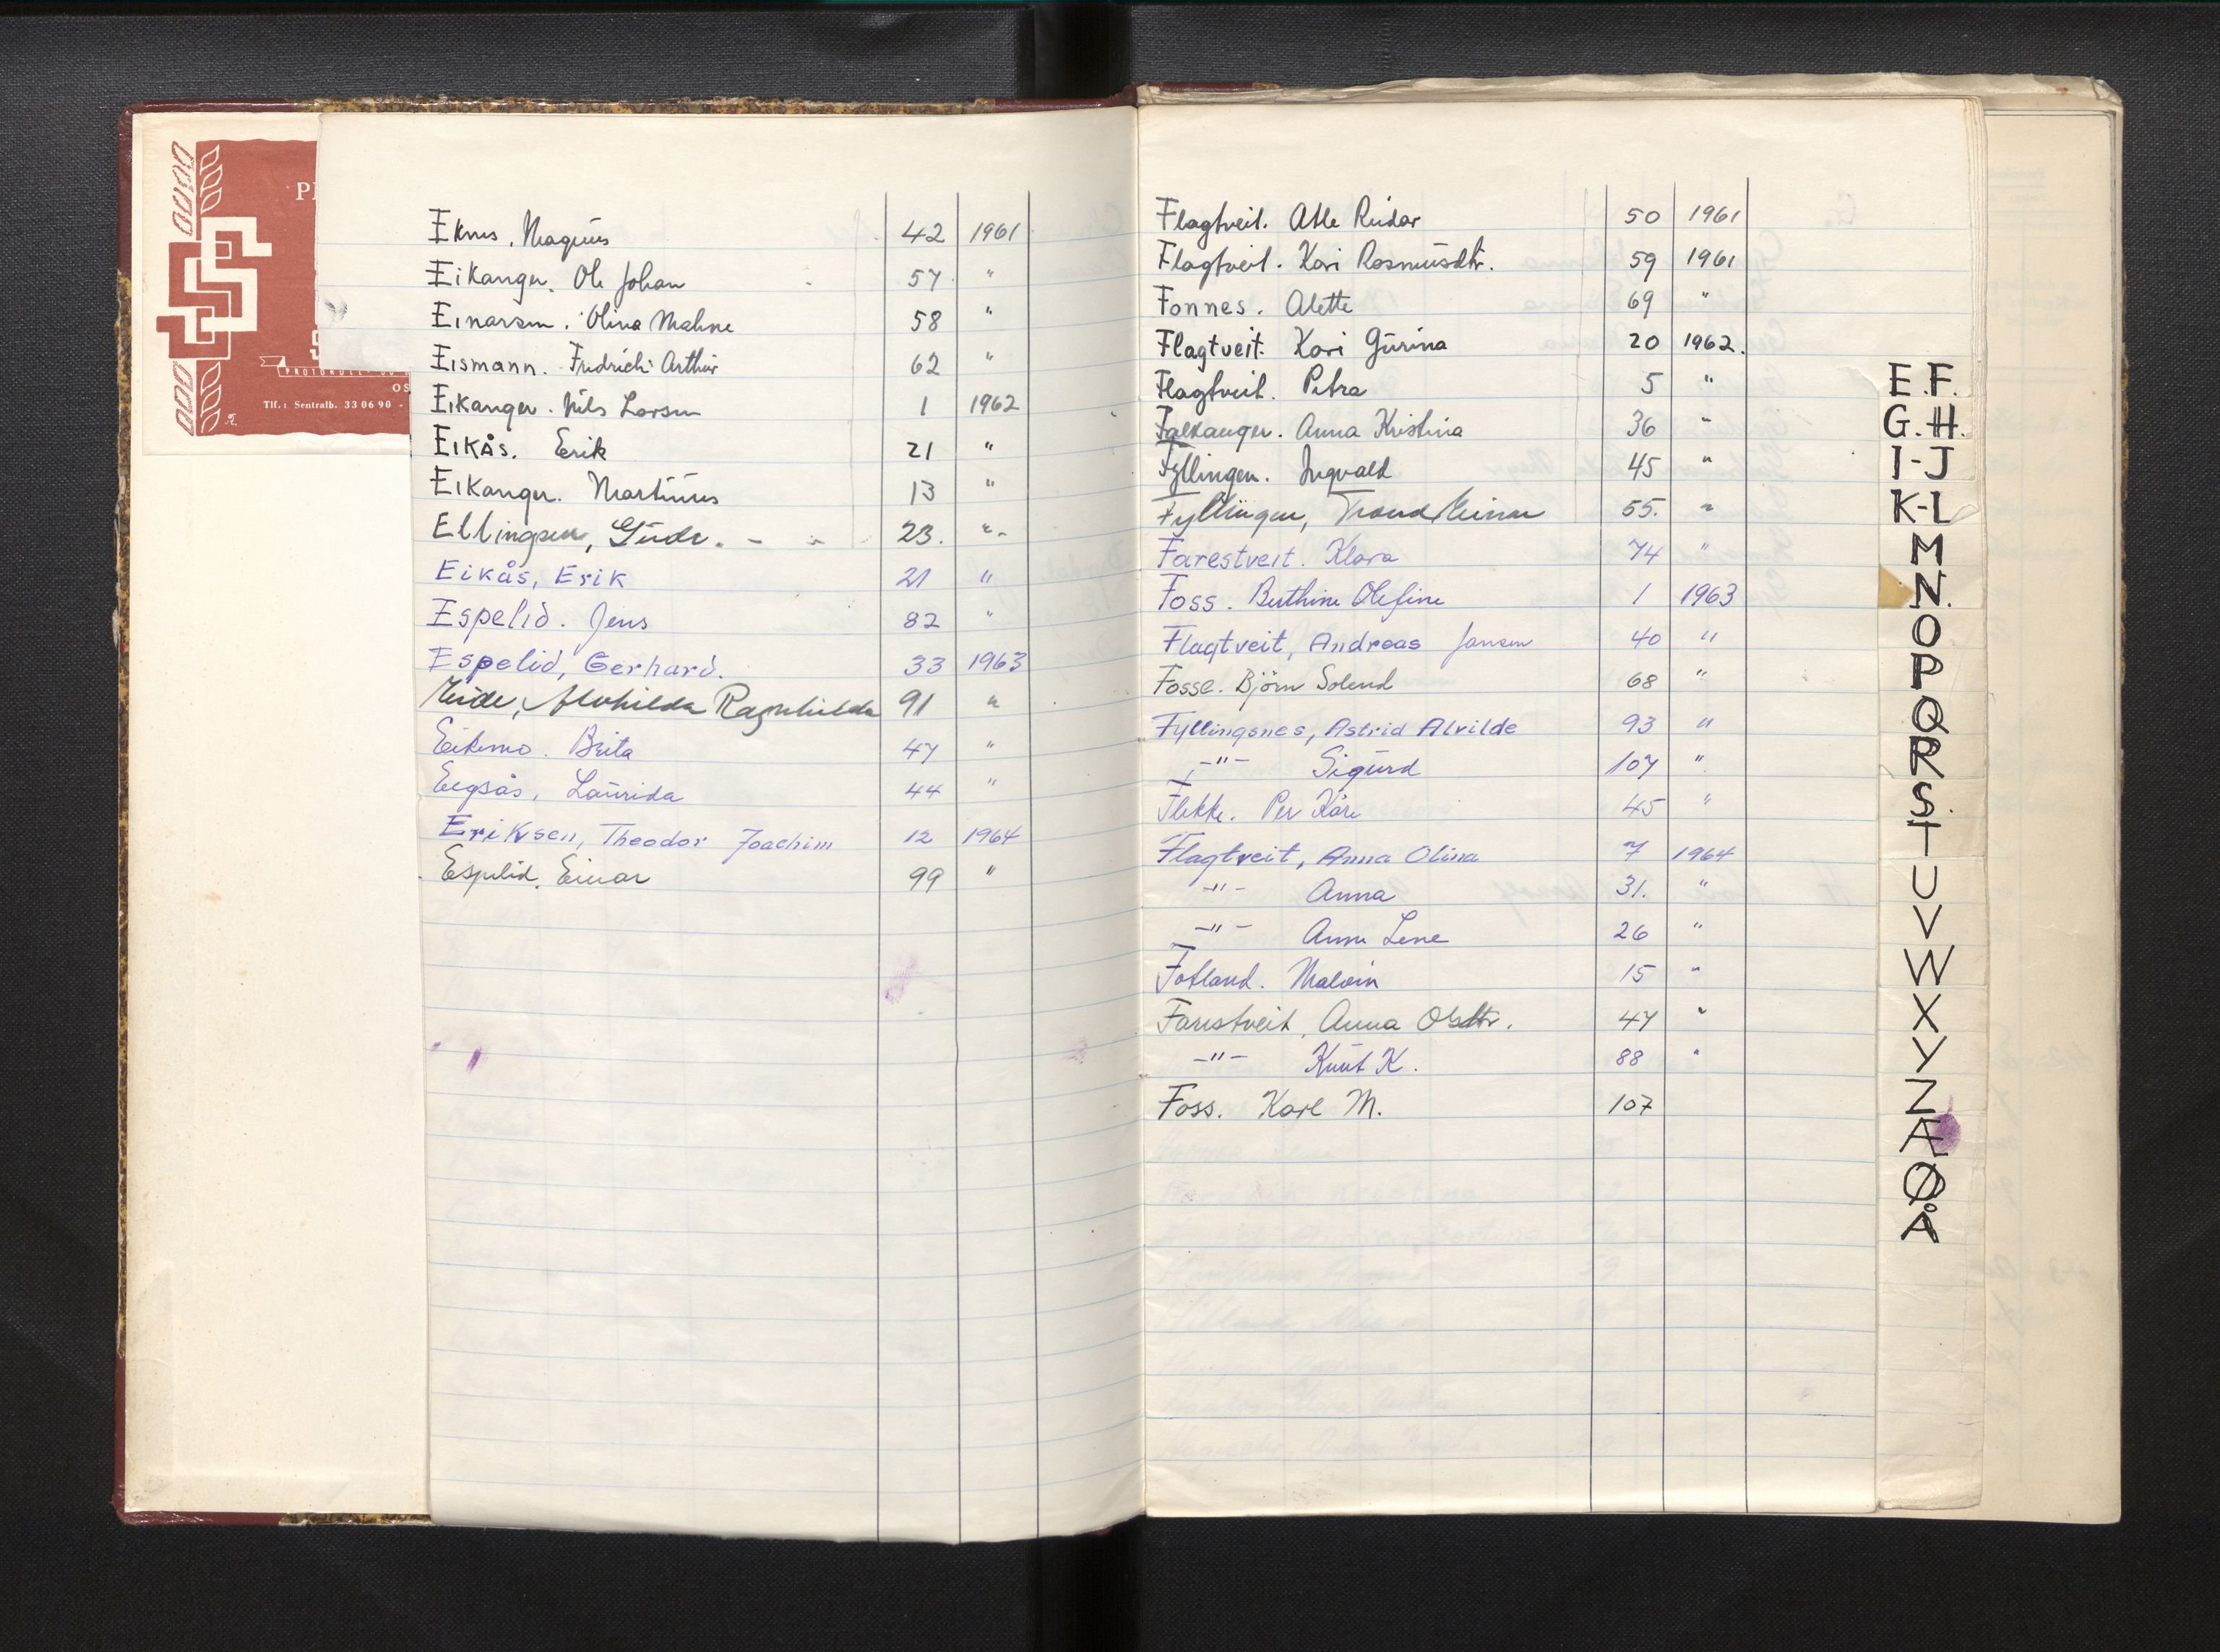 P
S
PROTOKOLL
OS
Tlf.: Sentralb. 33 06 90 -
Eknes, Magnus 42 1961
Eikanger. Ole Johan 57 "
Einarsen. Olina Malene 58 "
Eismann. Fridrich Arthur 62 "
Eikanger. Nils Larsen 1 1962
Eikås. Erik 21 "
Eikanger. Martinus 13 "
Ellingsen, Gudr. - - 23. "-
Eikås, Erik 21 "
Espelid. Jens 82 "
Espelid, Gerhard. 33 1963
Eide, Alvhilda Ragnhilda 91 "
Eikemo. Brita 47 "
Eegsås, Laurida 44 "
Eriksen, Theodor Joachim 12 1964
Espelid. Einar 99 "
Flagtveit. Atle Reidar 50 1961
Flagtveit. Kari Rasmusdtr. 59 1961
Fonnes. Alette 69 "
Flagtveit. Kari Gurina 20 1962.
Flagtveit. Petra 5 "
Falkanger. Anna Kristina 36 "
Fyllingen. Ingvald 45 "
Fyllingen, Trond Einar 55. "
Farestveit. Klara 74 "
Foss. Berthine Olefine 1 1963
Flagtveit, Andreas Jansen 40 "
Fosse. Björn Solend 68 "
Fyllingsnes, Astrid Alvilde 93 "
-"- Sigurd 107 "
Flekke. Per Kåre 45 "
Flagtveit, Anna Olina 7 1964
-"- Anna 31. "
-"- Anne Lene 26 "
Fotland. Malvin 15 "
Farestveit, Anna Olsdtr. 47 "
-"- Knut K. 88 "
Foss. Karl M. 107
E.F.
G.H.
I-J
K-L
M
N.
O
P
Q
R
S.
T
U
V
W
X
Y
Z
Æ
Ø
Å